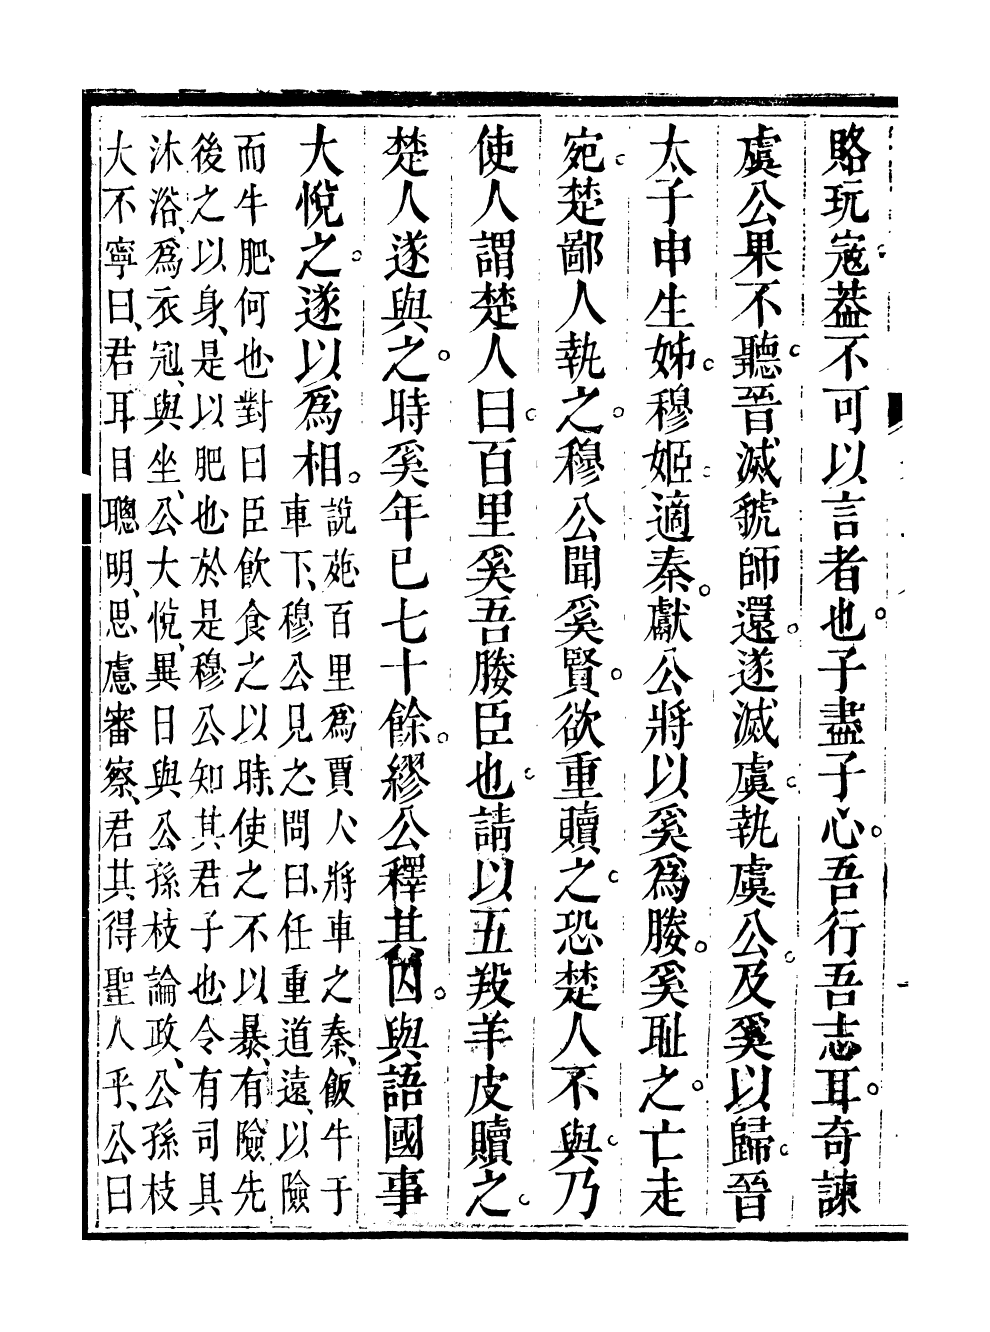 賂玩寇葢不可以言者也。子盡子心。吾行吾志耳。奇諫
虞公果不聽。晉滅虢師還。遂滅虞。執虞公。及奚以歸。晉
太子申生姊。穆姬。適秦。獻公將以奚爲媵。奚耻之。亡走
宛。楚鄙人執之。穆公聞奚賢。欲重贖之。恐楚人不與。乃
使人謂楚人曰。百里奚吾媵臣也。請以五羖羊皮贖之。
楚人遂與之。時奚年已七十餘。繆公釋其囚。與語國事
大悅之。遂以爲相。
說苑、百里爲賈人將車之秦、飯牛于
車下、穆公見之問曰、任重道遠、以險
而牛肥、何也對曰臣飲食之以時、使之不以暴、有險、先
後之以身、是以肥也、於是穆公知其君子也、令有司具
沐浴、爲衣冠、與坐、公大悅、異日與公孫枝論政、公孫枝
大不寧曰、君耳目聰明、思慮審察、君其得聖人乎、公曰